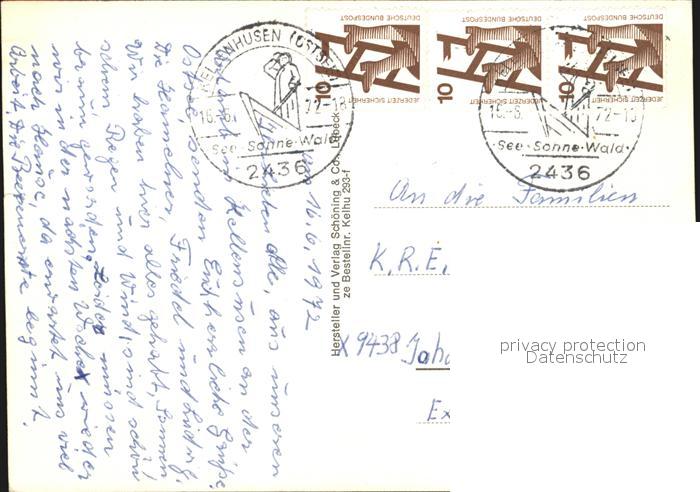 KELLENHUSEN (OSTSEE)
16.-6.
72-18
See · Sonne · Wald
2436
16.-6.
72-18
See · Sonne · Wald
2436
DEUTSCHE BUNDESPOST
10
JEDERZEIT SICHERHEIT
DEUTSCHE BUNDESPOST
10
JEDERZEIT SICHERHEIT
DEUTSCHE BUNDESPOST
10
JEDERZEIT SICHERHEIT
den 16.6.1972
alle, aus unseren
Urlaub in Kellenhusen an der
Ostsee senden Euch herzliche Grüße
Die Hannchen, Friedel und Ludwig.
Wir haben hier alles gehabt, Sonnen
schein Regen und Wind, und schön
Leider müssen
wir in den nächsten Wochen wieder
nach Hause, da erwartet uns viel
Arbeit. Die beginnt.
Hersteller und Verlag Schöning & Co., Lübeck
ze Bestellnr. Kelhu 293-f
An die Familien
K. R. E.
X 9438 Joha
Ex
privacy protection
Datenschutz